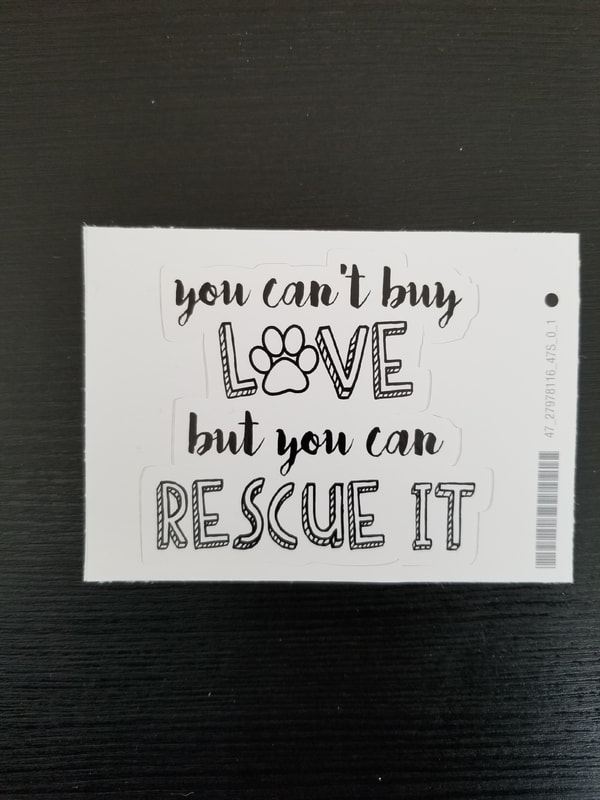 you can't buy
LOVE
but you can
RESCUE IT
47_27978116_475_0_1